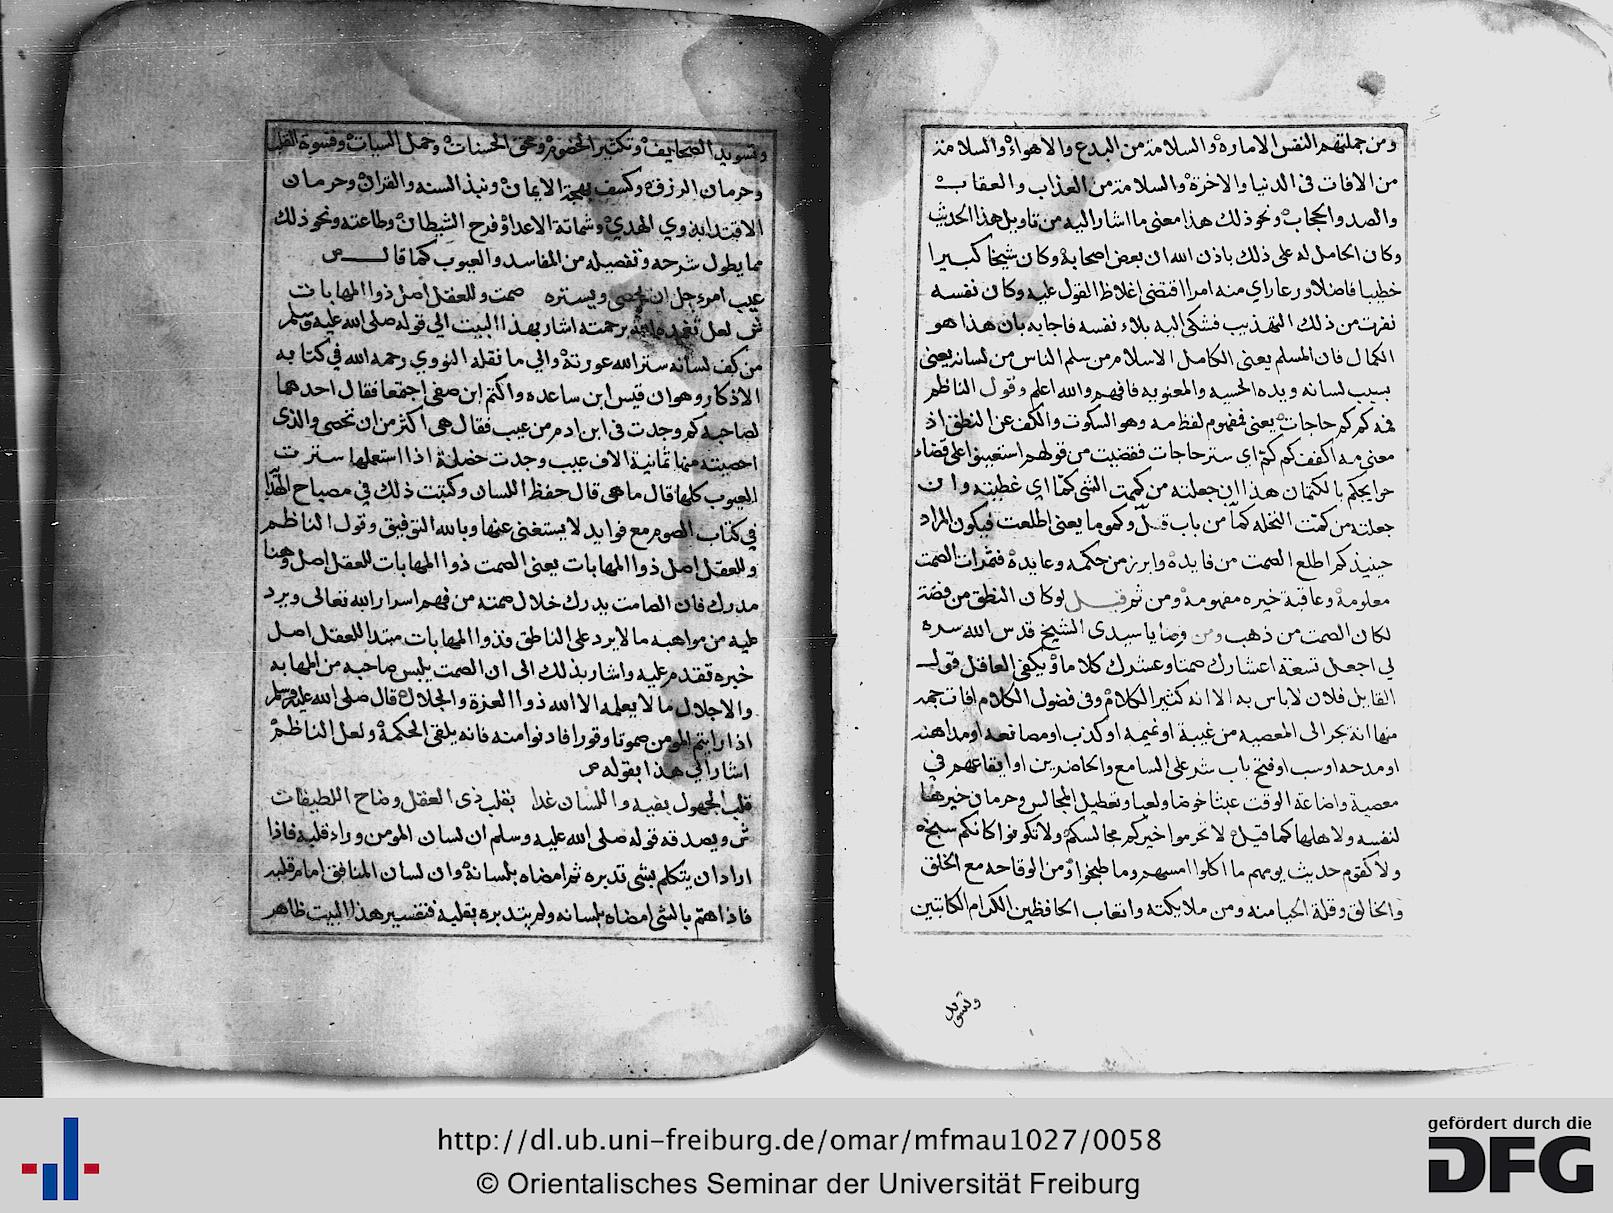 ومن جملتهم النفس الامارة والسلامة من البدع والاهواء والسلامة
من الافات في الدنيا والاخرة والسلامة من العذاب والعقاب
والصد والحجاب ونحو ذلك هذا معنى ما اشار اليه من تاويل هذا الحديث
وكان الحامل له على ذلك باذن الله ان بعض اصحابه وكان شيخا كبيرا
خطيبا فاضلا ورعا راي منه امرا اقتضى اغلاظ القول عليه وكان نفسه
نفرت من ذلك التهذيب فشكى اليه بلاء نفسه فاجابه بان هذا هو
الكمال فان المسلم يعنى الكامل الاسلام من سلم الناس من لسانه يعنى
بسبب لسانه ويده الحسيه والمعنويه فافهم والله اعلم وقول الناظم
فمه كم كم حاجات يعنى فمفهوم لفظ مه وهو السكوت والكف عن النطق اذ
معنى مه اكفف كم كم اي ستر حاجات فقضيت من قولهم استعينوا على قضاء
حوايجكم بالكتمان هذا ان جعلته من كممت الشي كما اي غطيته وان
جعلته من كمت النخله كما من باب قل وكموما يعنى اطلعت فيكون المراد
حينيذ كم اطلع الصمت من فايدة وابرز من حكمه وعايدة فثمرات الصمت
معلومة وعاقبة خيره مفهومة ومن ثم قيل لو كان النطق من فضة
لكان الصمت من ذهب ومن وصايا سيدى الشيخ قدس الله سره
لي اجعل تسعة اعشارك صمتا وعشرك كلاما ويكفى العاقل قول
القايل فلان لا باس به الا انه كثير الكلام وفى فضول الكلام افات جمه
منها انه يجر الى المعصيه من غيبة او نميمه او كذب او مصانعه او مداهنه
او مدحه او سب او فتح باب شر على السامع والحاضرين او ايقاعهم في
معصية واضاعة الوقت عبثا خوضا ولعبا وتعطيل المجالس وحرمان خيرها
لنفسه ولاهلها كما قيل لا تحرموا خيركم مجالسكم ولا تكونوا كانكم سبخه
ولا كقوم حديث يومهم ما اكلوا امسهم وما طبخوا ومن الوقاحه مع الخلق
والخالق وقلة الحيا منه ومن ملايكته واتعاب الحافظين الكرام الكاتبين
وتسويد
وتسويد الصحايف وتكثير الخصوم ومحق الحسنات وحمل السيات وقسوة القلب
وحرمان الرزق وكسف بهجة الايمان ونبذ السنه والقران وحرمان
الاقتدا بذوي الهدي وشماتة الاعدا وفرح الشيطان وطاعته ونحو ذلك
مما يطول شرحه وتفصيله من المفاسد والعيوب كما قال ص
عيب امرء جل ان يحصى ويستره صمت وللعقل اصل ذو المهابات
ش لعل تغمده الله برحمته اشار بهذا البيت الي قوله صلى الله عليه وسلم
من كف لسانه ستر الله عورته والي ما نقله النووي رحمه الله في كتابه
الاذكار وهو ان قيس ابن ساعده واكثم ابن صفى اجتمعا فقال احدهما
لصاحبه كم وجدت فى ابن ادم من عيب فقال هى اكثر من ان تحصى والذى
احصيته منها ثمانية الاف عيب وجدت خصلة اذا استعملها سترت
العيوب كلها قال ما هى قال حفظ اللسان وكتبت ذلك في مصباح الهدا
في كتاب الصوم مع فوايد لا يستغنى عنها وبالله التوفيق وقول الناظم
وللعقل اصل ذو المهابات يعنى الصمت ذوا المهابات للعقل اصل وهنا
مدرك فان الصامت يدرك خلال صمته من فهم اسرار الله تعالى ويرد
عليه من مواهبه ما لا يرد على الناطق فذوا المهابات مبتدا للعقل اصل
خبره تقدم عليه واشار بذلك الى ان الصمت يلبس صاحبه من المهابه
والاجلال ما لا يعلمه الا الله ذوا العزة والجلال قال صلى الله عليه وسلم
اذا رايتم المومن صموتا وقورا فادنوا منه فانه يلقى الحكمة ولعل الناظم
اشار الي هذا بقوله ص
قلب الجهول بفيه واللسان غدا بقلب ذى العقل وضاح اللطيفات
ش ويصدقه قوله صلى الله عليه وسلم ان لسان المومن وراء قلبه فاذا
اراد ان يتكلم بشى تدبره ثم امضاه بلسانه وان لسان المنافق امام قلبه
فاذا هم بالشى امضاه بلسانه ولم يتدبره بقلبه فتفسير هذا البيت ظاهر
http://dl.ub.uni-freiburg.de/omar/mfmau1027/0058
© Orientalisches Seminar der Universität Freiburg
gefördert durch die
DFG